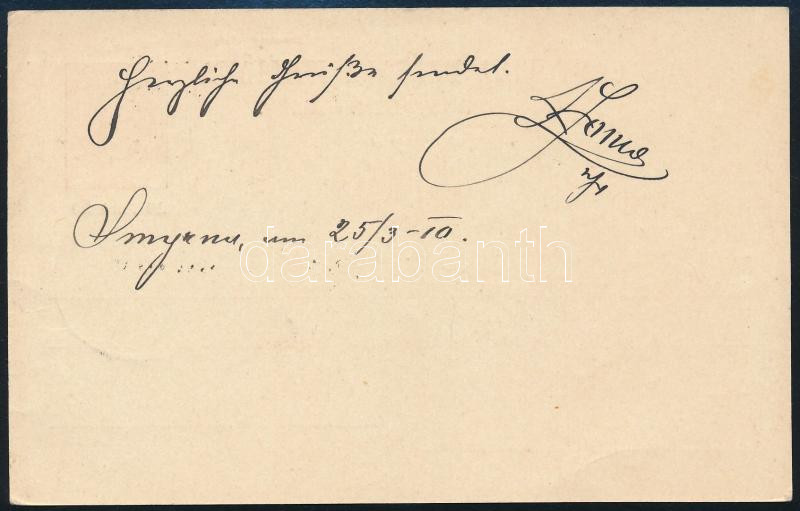 Herzliche Grüße sendet.
Smyrna, am 25/3-10.
darabanth